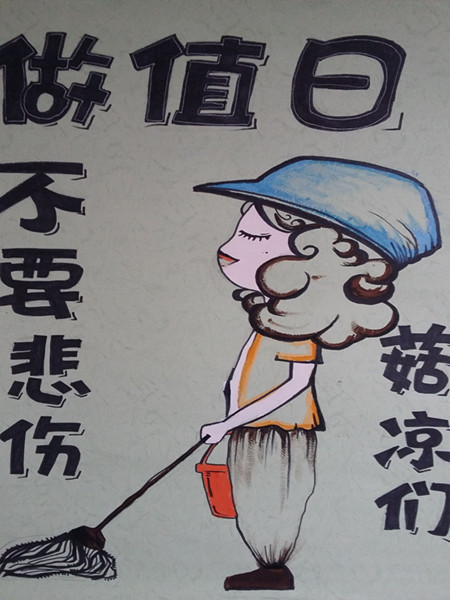 做值日
不要悲伤
菇凉们